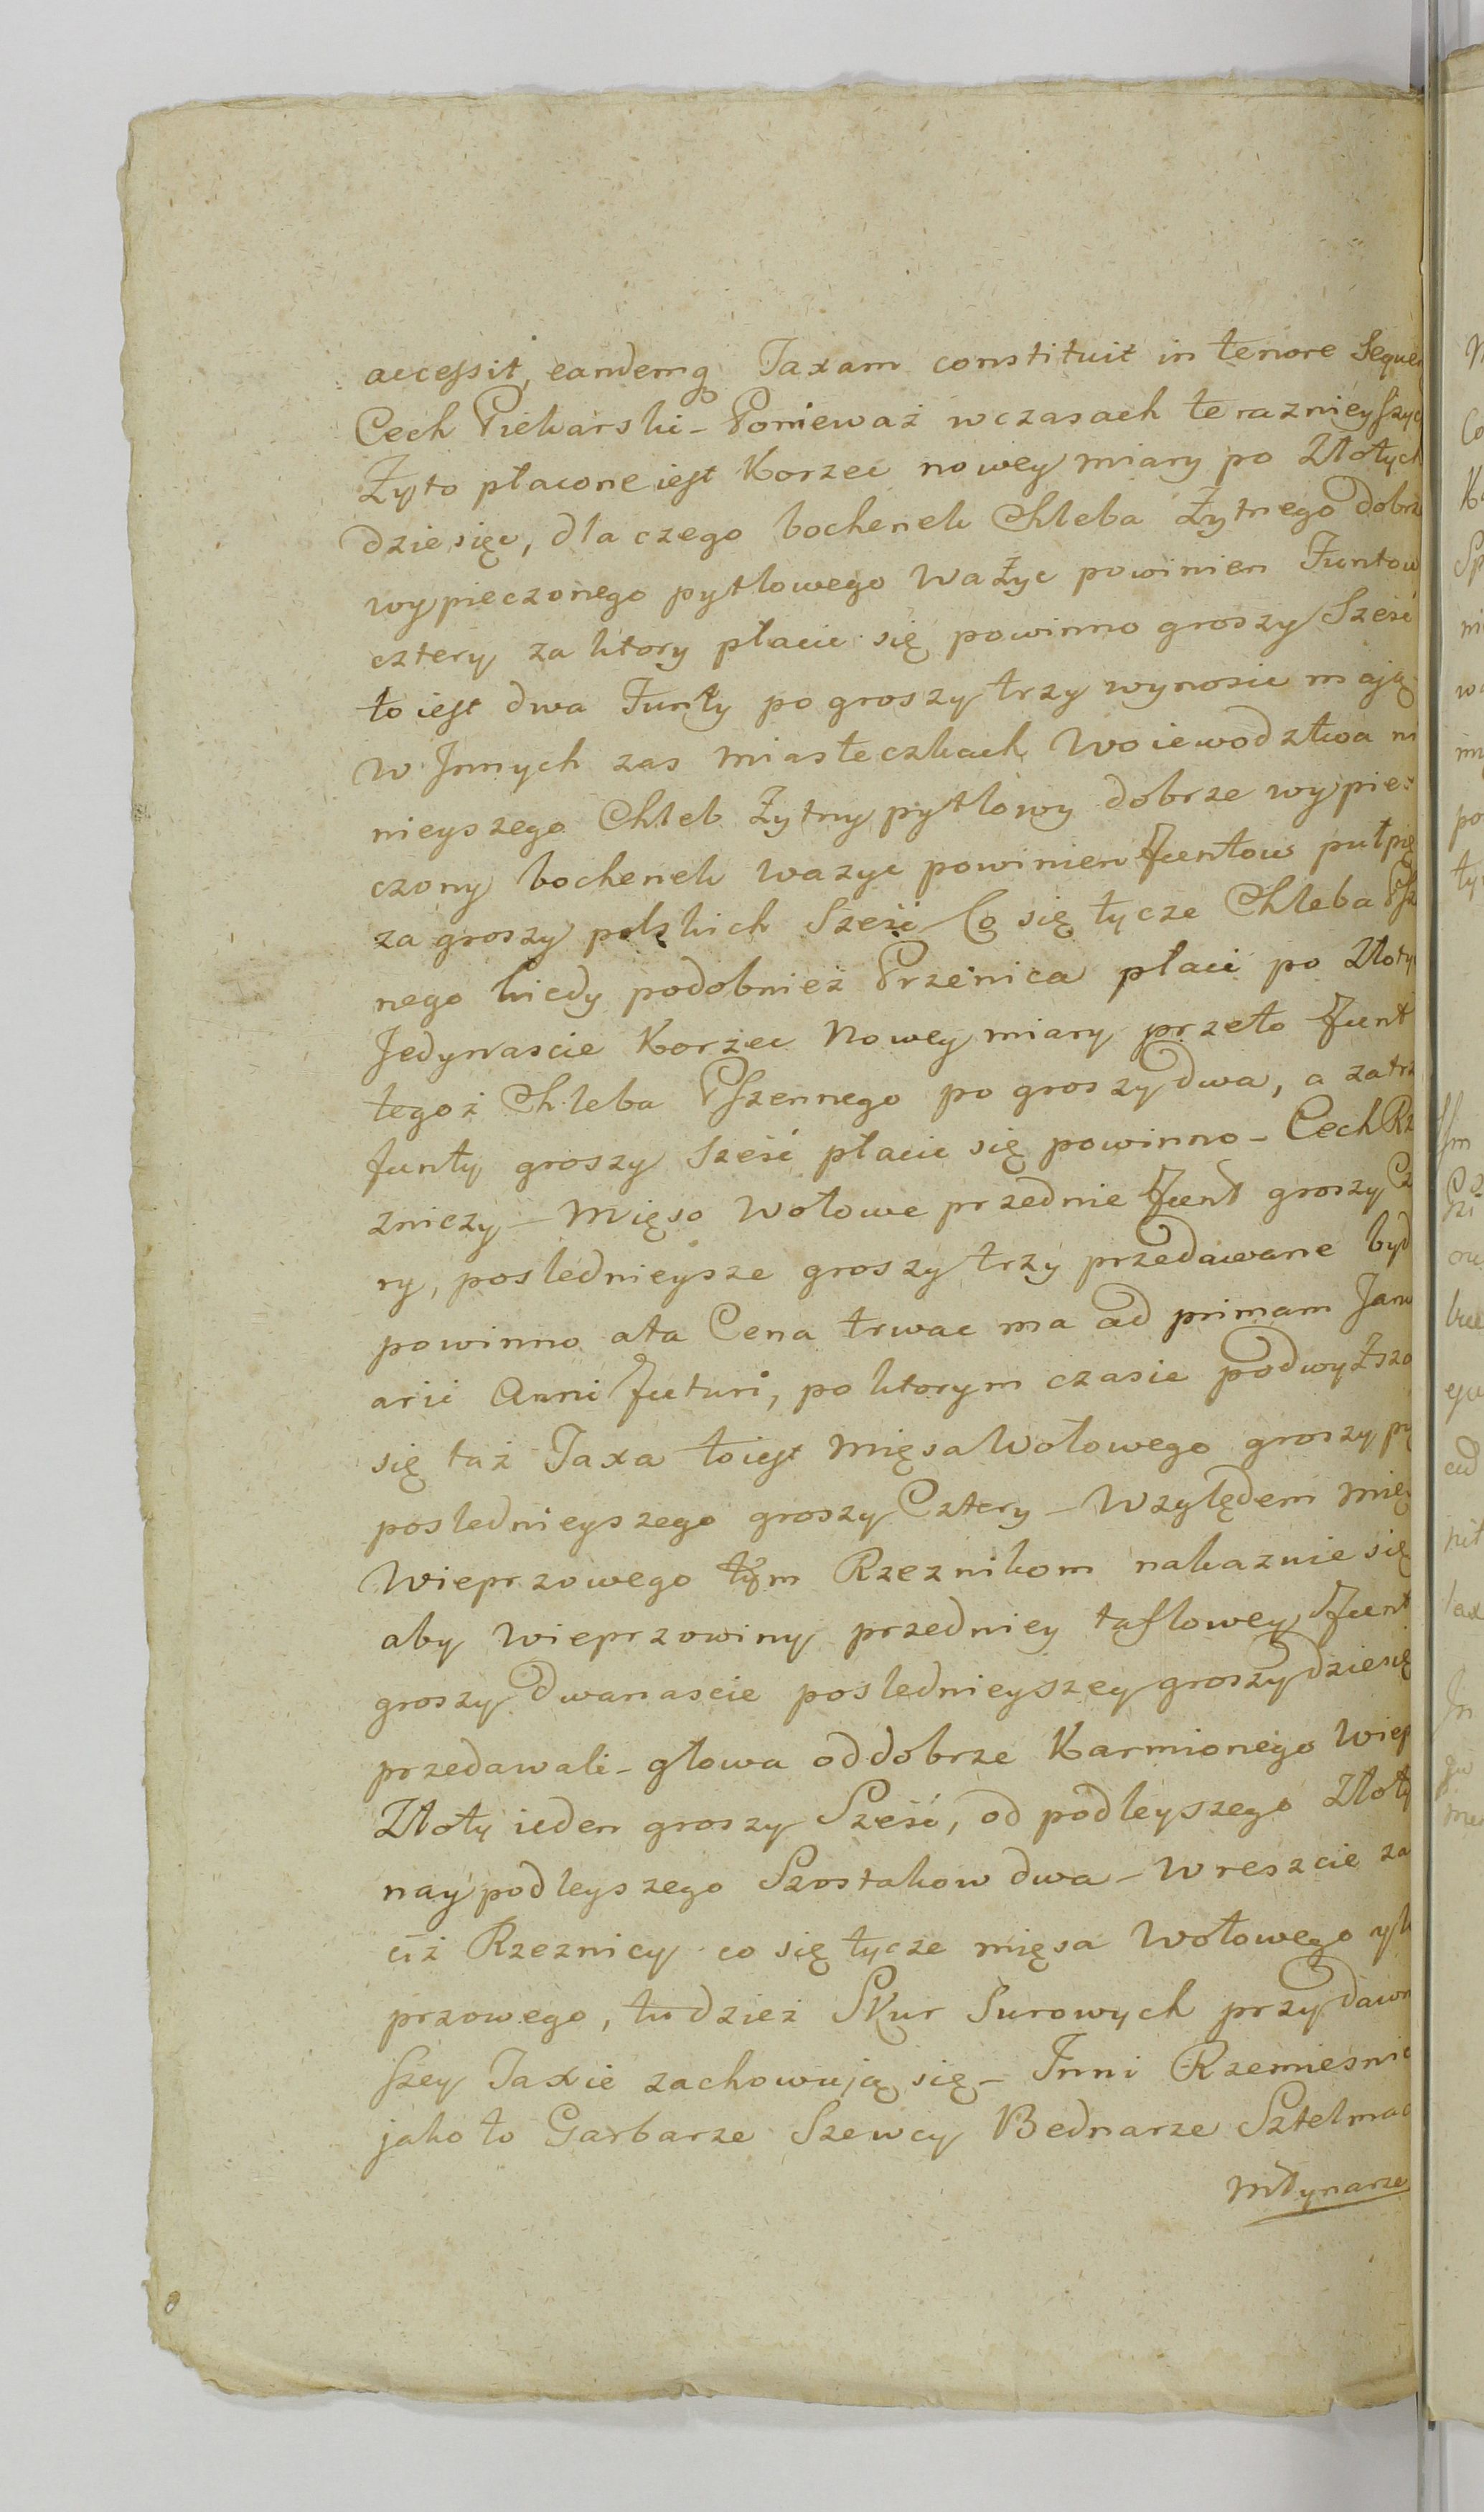 accessit, eandemq Taxam constituit in tenore Seque
Cech Piekarski – Ponieważ w czasach terazniey szyc
Żyto płacone iest Korzec nowey miary po Złotych
dziesięć, dla czego bochenek Chleba Żytnego dobrz
wypieczonego pytlowego ważyc powinien Funtow
cztery za ktory płacic się powinno groszy Sześć
to iest dwa Funty po groszy trzy wynosic mają
w Innych zas miasteczkach Woiewodztwa ni
nieyszego Chleb Żytny pytlowy dobrze wypie
czony bochenek wazyc powinien Funtow pułpię
za groszy polskich Sześć Co się tycze Chleba Psz
nego kiedy podobnież Przenica płaci po Złoty
Jedynascie Korzec Nowey miary przeto Funt
tegoż Chleba Pszennego po groszy dwa, a za trz
funty groszy sześć płacic się powinno – Cech Rz
zniczy – Mięso Wołowe przednie Funt groszy Cz
ry, poslednieysze groszy trzy przedawane być
powinno a ta Cena trwac ma ad primam Janu
arii Anni Futuri, po ktorym czasie podwyższa
się taż Taxa to iest Mięsa Wołowego groszy pię
poslednieyszego groszy Cztery – Względem mię
Wieprzowego tym Rzeznikom nakazuie się
aby wieprzowiny przedniey taflowey Funt
groszy dwanascie poslednieyszey groszy dziesię
przedawali – głowa od dobrze Karmionego Wiep
Złoty ieden groszy Sześć, od podleyszego Złoty
naypodleyszego Szostakow dwa – W reszcie za
ciż Rzeznicy co się tycze mięsa Wołowego
przowego, tudzież Skur Surowych przy dawn
szey Taxie zachowują się – Inni Rzemiesnic
jako to Garbarze Szewcy Bednarze Sztelmac
Młynarze